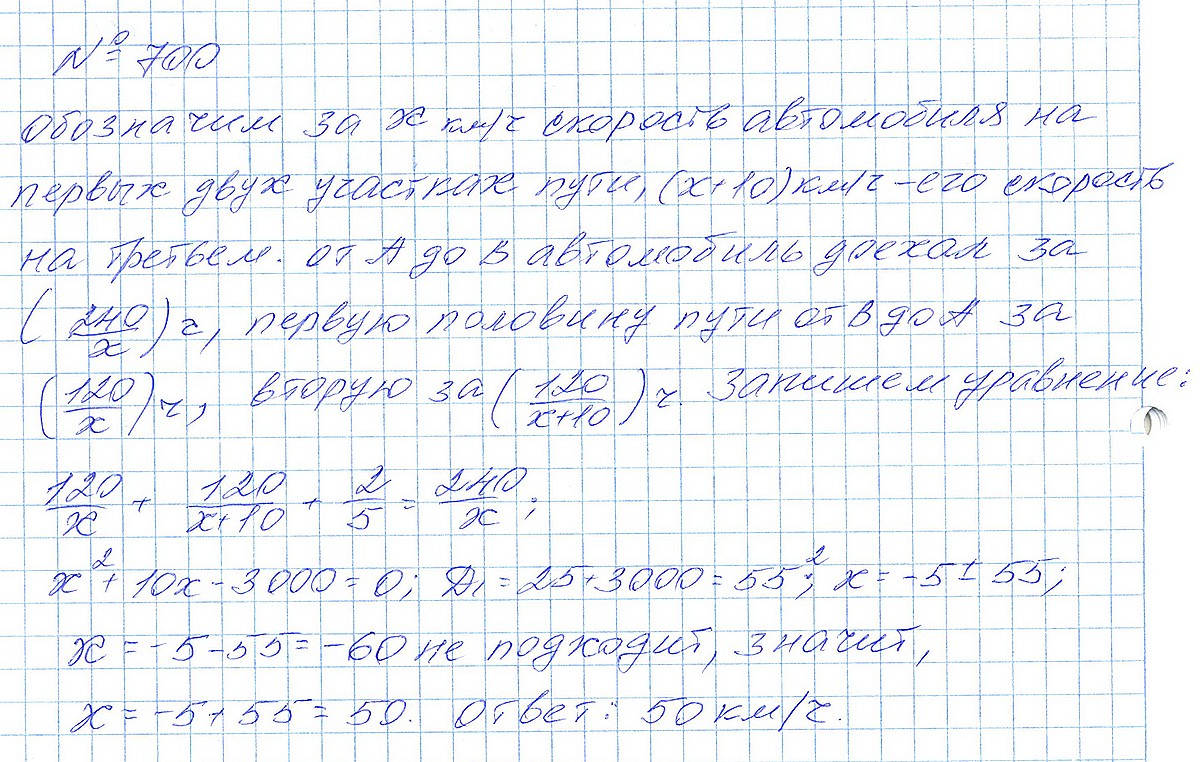 № 700
Обозначим за x км/ч скорость автомобиля на
первых двух участках пути, (x+10) км/ч - его скорость
на третьем. От A до B автомобиль доехал за
(240/x) ч, первую половину пути от B до A за
(120/x) ч, вторую за (120/x+10) ч. Запишем уравнение:
120/x + 120/x+10 + 2/5 = 240/x;
x² + 10x - 3000 = 0; D₁ = 25+3000 = 55²; x = -5 ± 55;
x = -5-55 = -60 не подходит, значит,
x = -5+55 = 50. Ответ: 50 км/ч.